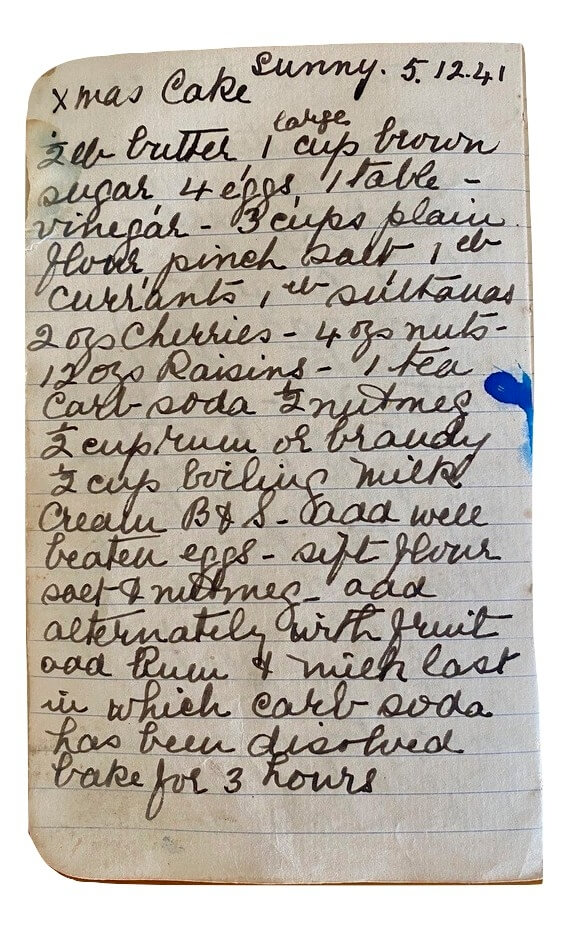 Xmas Cake Sunny. 5.12.41
½ lb butter, 1 large cup brown
sugar, 4 eggs, 1 table -
vinegar - 3 cups plain
flour, pinch salt, 1 lb
currants, 1 lb sultanas
2 ozs Cherries - 4 ozs nuts -
12 ozs Raisins - 1 tea
Carb soda ½ nutmeg
½ cup rum or brandy
½ cup boiling milk
Cream B & S - add well
beaten eggs - sift flour
salt & nutmeg - add
alternately with fruit
add Rum & milk last
in which carb soda
has been disolved
bake for 3 hours